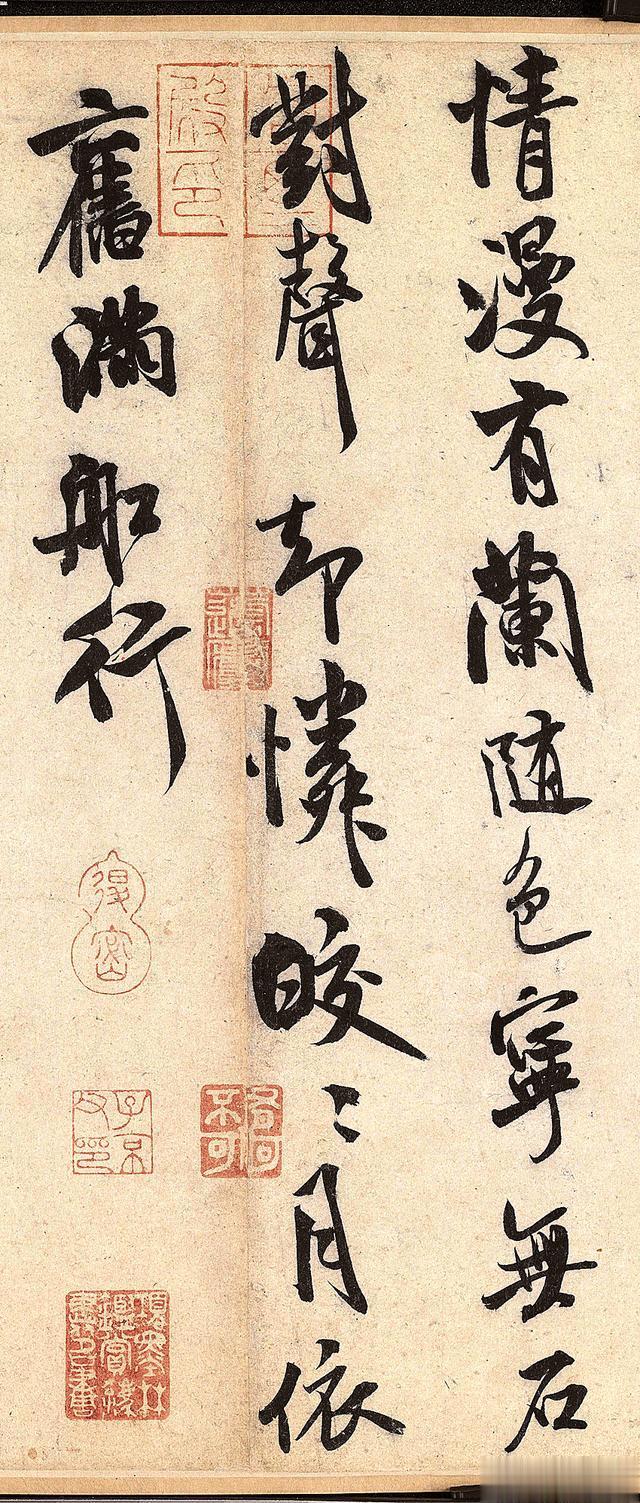 情漫有蘭随色寧無石
對聲却憐皎〻月依
舊滿船行